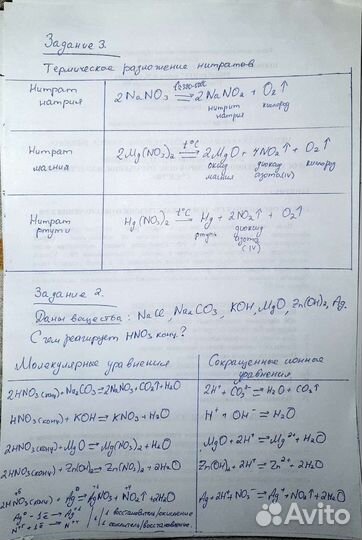 Задание 3.
Термическое разложение нитратов
Нитрат натрия
2NaNO₃ ⇌ 2NaNO₂ + O₂↑
нитрит натрия кислород
Нитрат магния
2Mg(NO₃)₂ ⇌ t°C 2MgO + 4NO₂↑ + O₂↑
оксид магния диоксид азота(IV) кислород
Нитрат ртути
Hg(NO₃)₂ ⇌ t°C Hg + 2NO₂↑ + O₂↑
ртуть диоксид азота (IV)
Задание 2.
Даны вещества: NaCl, Na₂CO₃, KOH, MgO, Zn(OH)₂, Ag.
С чем реагирует HNO₃ конц.?
Молекулярные уравнения
Сокращенные ионные уравнения
2HNO₃(конц) + Na₂CO₃ = 2NaNO₃ + CO₂↑ + H₂O
2H⁺ + CO₃²⁻ = H₂O + CO₂↑
HNO₃(конц) + KOH = KNO₃ + H₂O
H⁺ + OH⁻ = H₂O
2HNO₃(конц) + MgO = Mg(NO₃)₂ + H₂O
MgO + 2H⁺ = Mg²⁺ + H₂O
2HNO₃(конц) + Zn(OH)₂ = Zn(NO₃)₂ + 2H₂O
Zn(OH)₂ + 2H⁺ = Zn²⁺ + 2H₂O
2HNO₃(конц) + Ag = AgNO₃ + NO₂↑ + H₂O
Ag + 2H⁺ + NO₃⁻ = Ag⁺ + NO₂↑ + H₂O
Ag⁰ - 1ē → Ag⁺¹ 1 восстановитель/окисление
N⁺⁵ + 1ē → N⁺⁴ 1 окислитель/восстановление
Avito